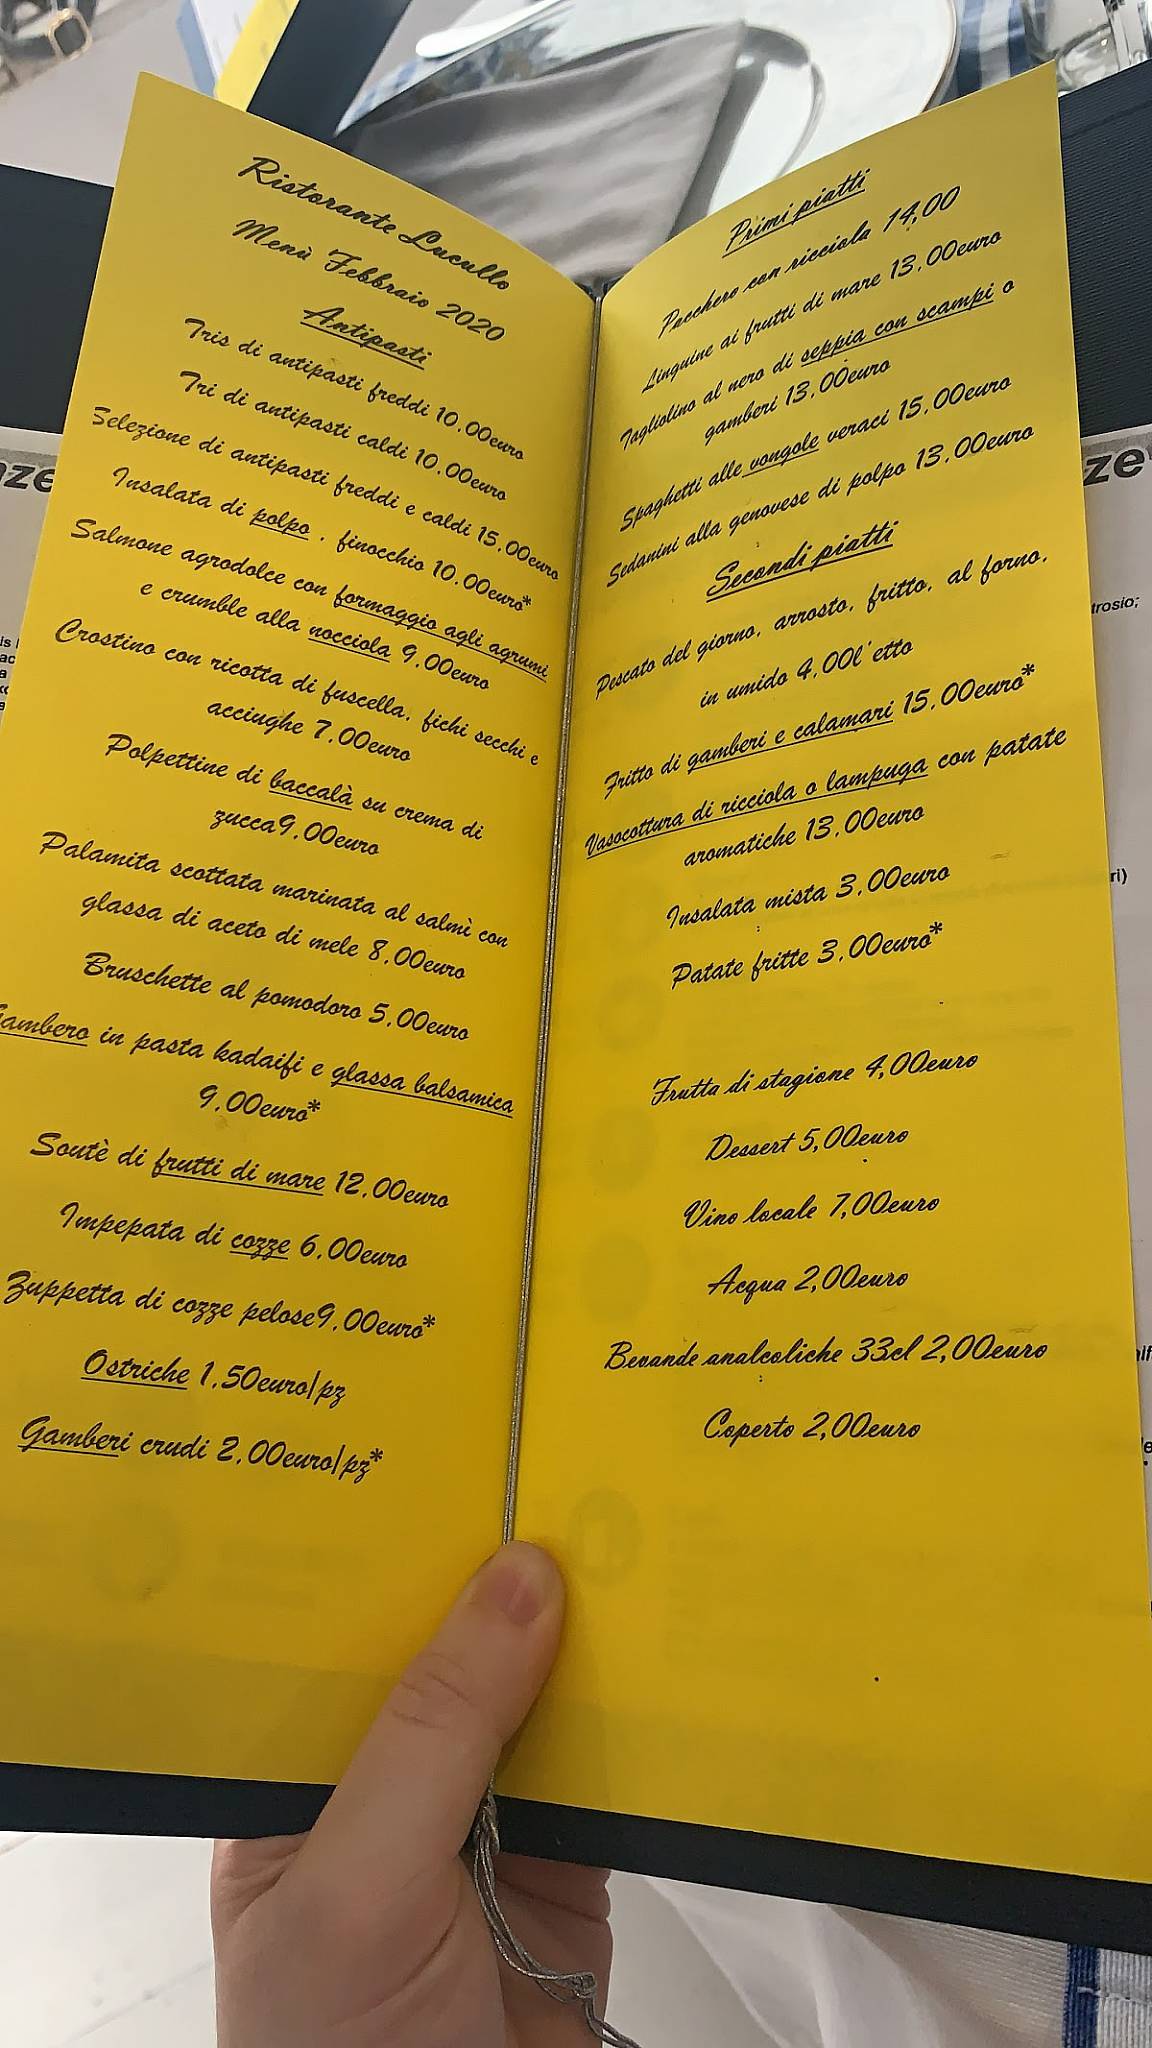 Ristorante Lucullo
Menù Febbraio 2020
Antipasti
Tris di antipasti freddi 10.00euro
Tri di antipasti caldi 10.00euro
Selezione di antipasti freddi e caldi 15.00euro
Insalata di polpo , finocchio 10.00euro*
Salmone agrodolce con formaggio agli agrumi
e crumble alla nocciola 9.00euro
Crostino con ricotta di fuscella, fichi secchi e
acciughe 7.00euro
Polpettine di baccalà su crema di
zucca9.00euro
Palamita scottata marinata al salmì con
glassa di aceto di mele 8.00euro
Bruschette al pomodoro 5.00euro
Gambero in pasta kadaifi e glassa balsamica
9.00euro*
Soutè di frutti di mare 12.00euro
Impepata di cozze 6.00euro
Zuppetta di cozze pelose9.00euro*
Ostriche 1.50euro/pz
Gamberi crudi 2.00euro/pz*
Primi piatti
Pacchero con ricciola 14,00
Linguine ai frutti di mare 13.00euro
Tagliolino al nero di seppia con scampi o
gamberi 13.00euro
Spaghetti alle vongole veraci 15.00euro
Sedanini alla genovese di polpo 13.00euro
Secondi piatti
Pescato del giorno, arrosto, fritto, al forno,
in umido 4.00l'etto
Fritto di gamberi e calamari 15.00euro*
Vasocottura di ricciola o lampuga con patate
aromatiche 13.00euro
Insalata mista 3.00euro
Patate fritte 3.00euro*
Frutta di stagione 4,00euro
Dessert 5,00euro
Vino locale 7,00euro
Acqua 2,00euro
Bevande analcoliche 33cl 2,00euro
Coperto 2,00euro